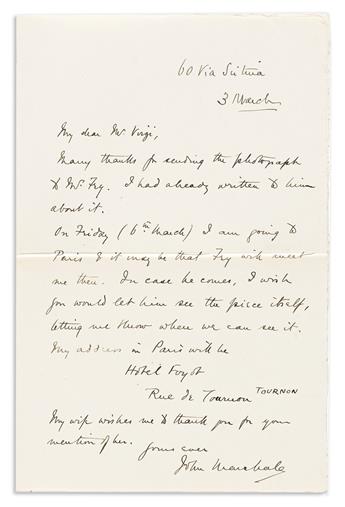 60 Via Sistina
3 March
My dear Mr Vorgi,
Many thanks for sending the photograph
to Mr. Fry. I had already written to him
about it.
On Friday (6th March) I am going to
Paris & it may be that Fry will meet
me then. In case he comes, I wish
you would let him see the piece itself,
letting me know where we can see it.
My address in Paris will be
Hotel Foyot
Rue de Tournon TOURNON
My wife wishes me to thank you for your
mention of her.
Yours ever
John Marshall